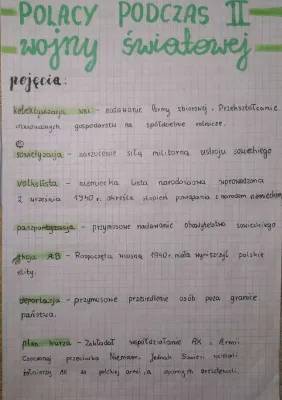 POLACY PODCZAS II
wojny światowej
pojęcia:
kolektywizacja wsi - nadawanie formy zbiorowej. Przekształcanie
indywidualnych gospodarstw na spółdzielnie rolnicze.
sowietyzacja - narzucenie siłą militarną ustroju sowieckiego
volkslista - niemiecka lista narodowa wprowadzona
2 września 1940r. określa stopień powiązania z narodem niemieckim
paszportyzacja - przymusowe nadawanie obywatelstwa sowieckiego
akcja AB - Rozpoczęta wiosną 1940r. miała wyniszczyć polskie
elity.
deportacja - przymusowe przesiedlenie osób poza granice
państwa.
plan burza - Zakładał współdziałanie AK i Armii
Czerwonej przeciwko Niemcom. Jednak Sowieci
żołnierzy AK do polskiej armii, a opornych aresztowali.